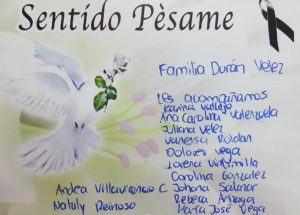 Sentido Pèsame
Familia Durán Velez
Les acompañamos
Karina Vallejo
Ana Carolina Valenzuela
Juliana Velez
Vanessa Roldan
Dolores Vega
Lorena Vintimilla
Carolina Gonzalez
Andrea Villavicencio C. Johana Salamar
Nataly Reinoso Rebeca Arriaga
María José Vega